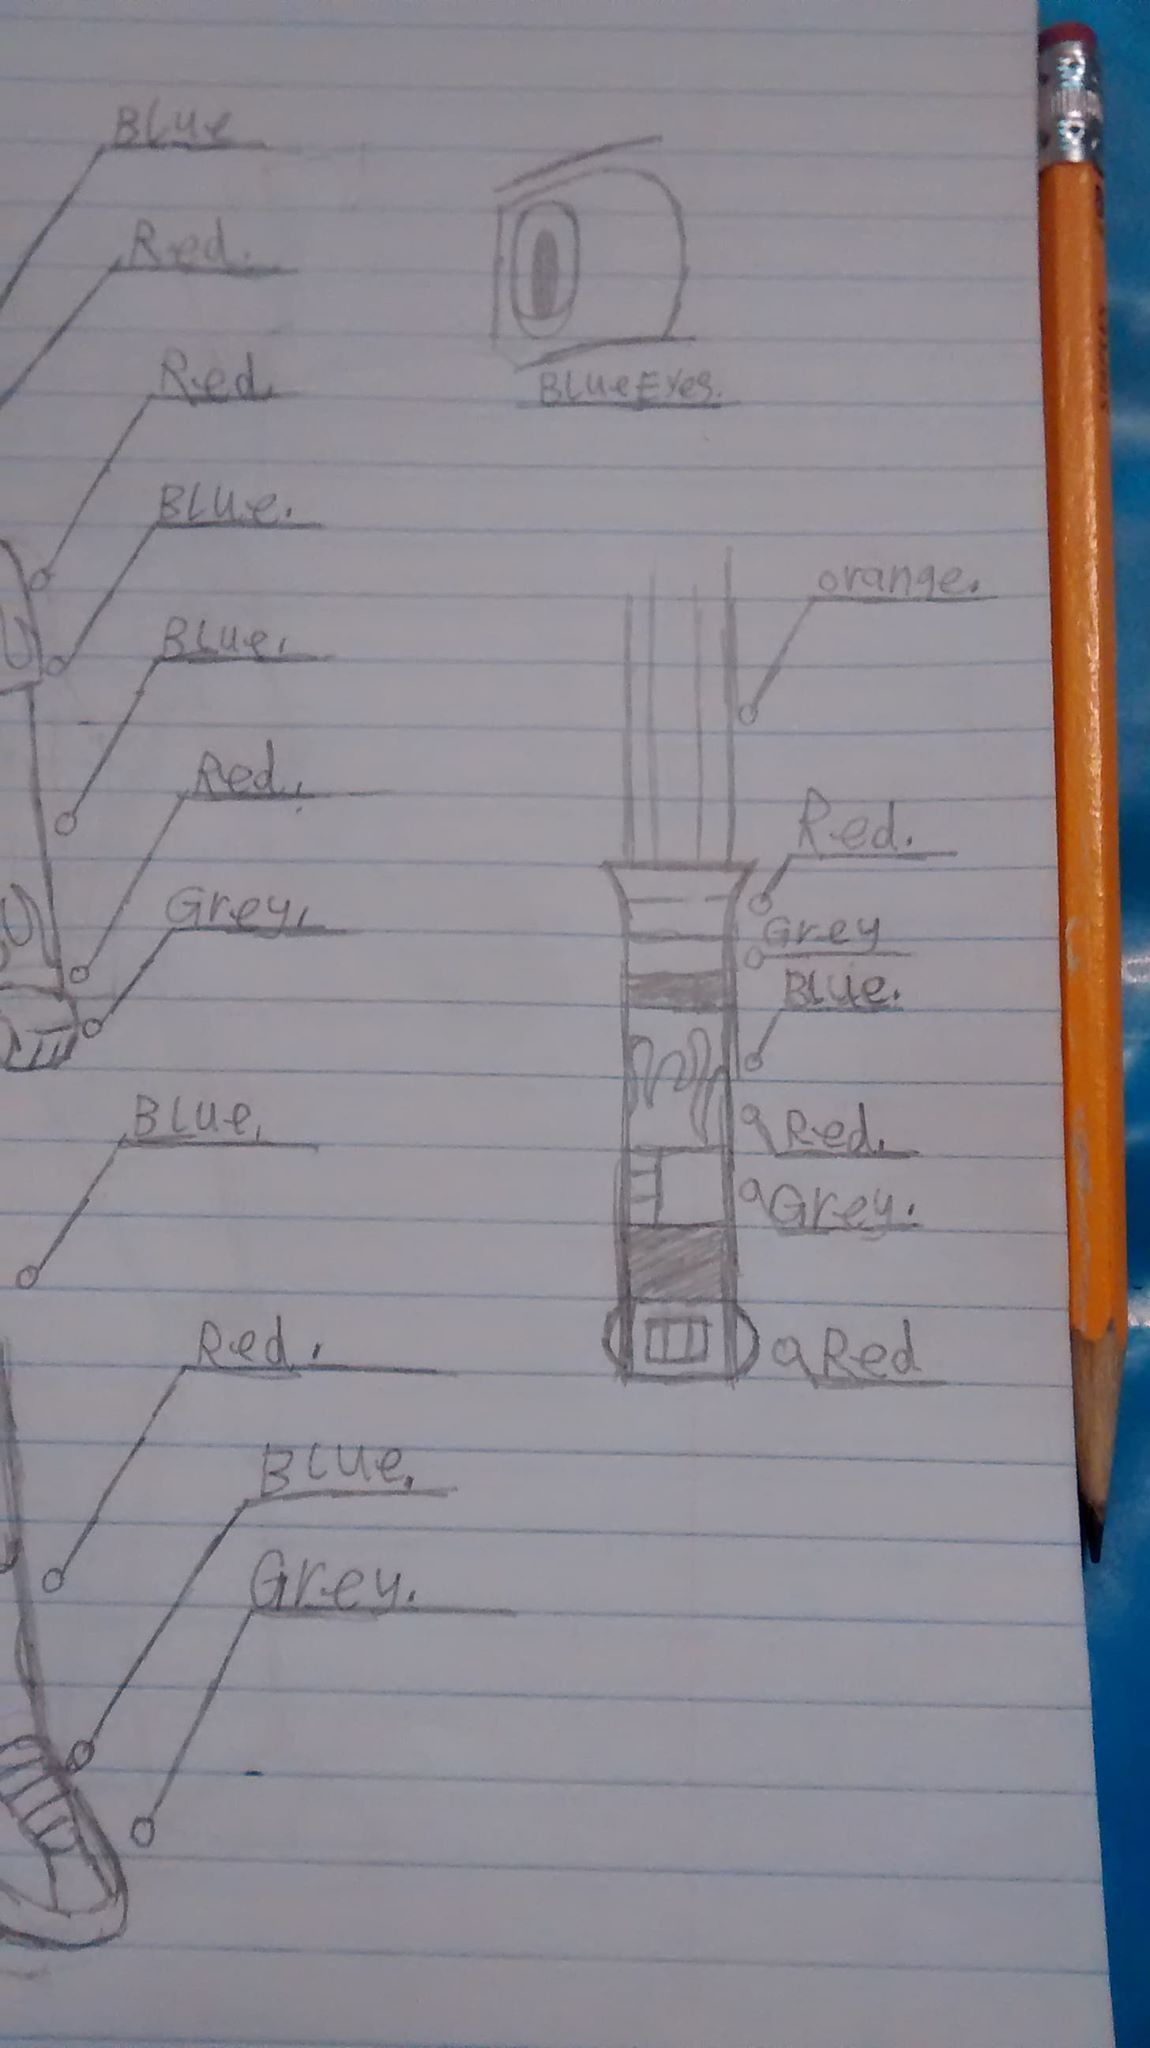 Blue
Red.
Red.
Blue.
Blue.
Red.
Grey.
Blue.
Red.
Blue.
Grey.
Blue Eyes.
orange.
Red.
Grey
Blue.
Red.
Grey.
Red